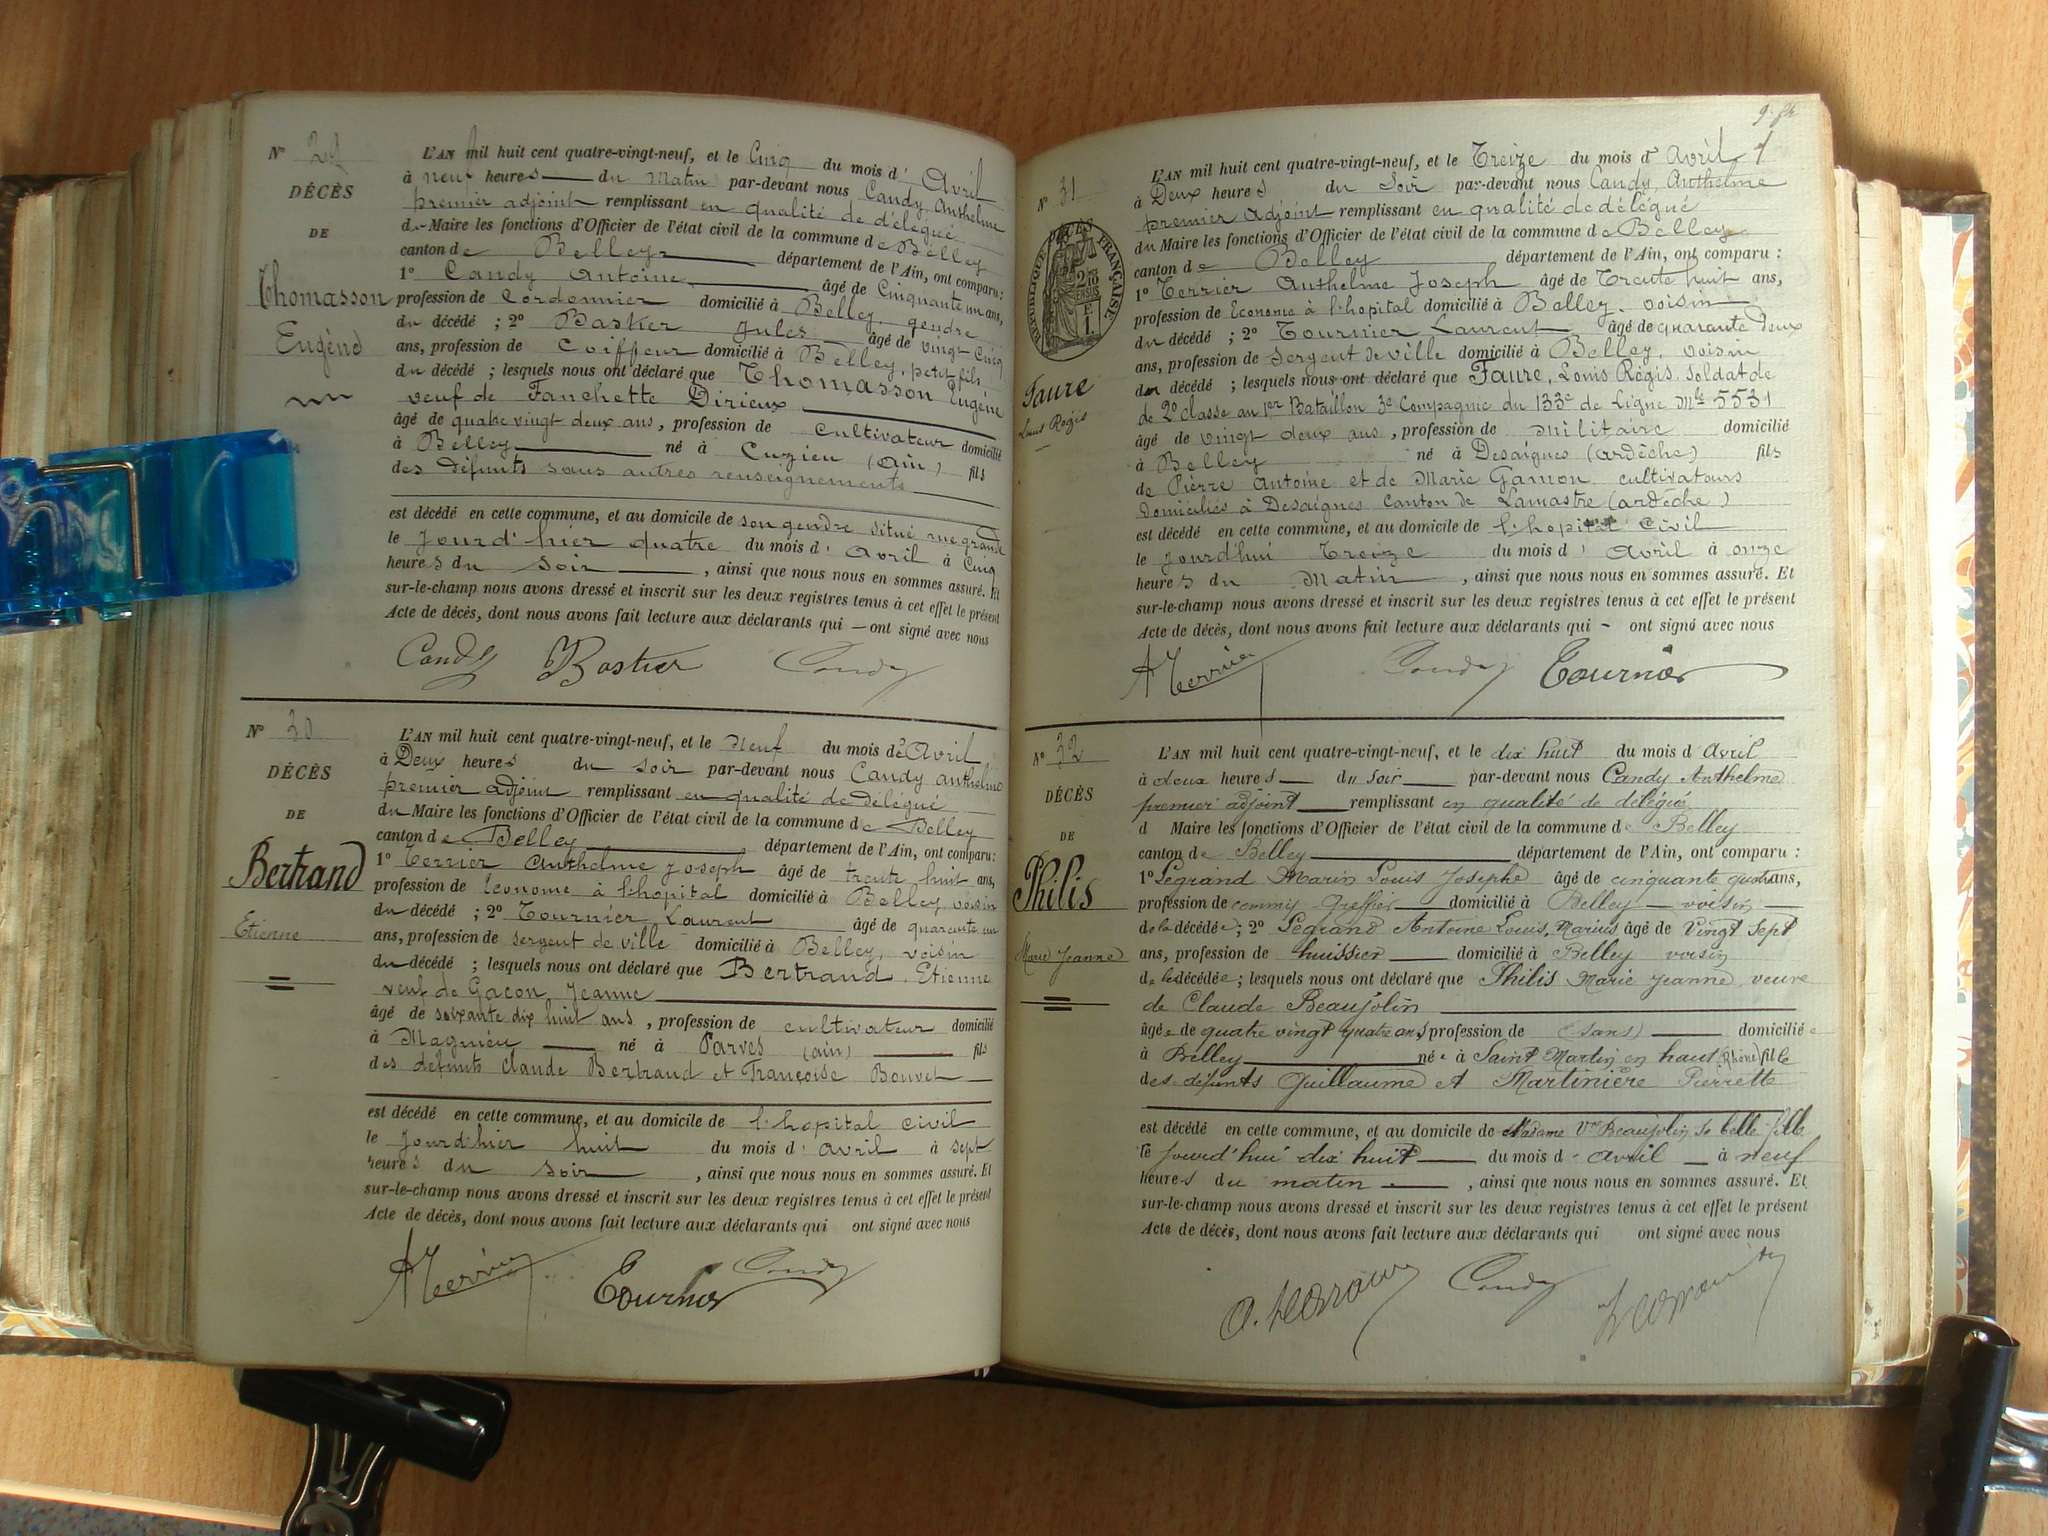 N° 29
DÉCÈS
DE
Thomasson
Eugénd
L'AN mil huit cent quatre-vingt-neuf, et le Cinq du mois d' Avril
à neuf heures du Matin par-devant nous Candy, Anthelme
premier adjoint remplissant en qualité de délégué
de Maire les fonctions d'Officier de l'état civil de la commune de Belley
canton de Belley département de l'Ain, ont comparu :
1° Candy Antoine âgé de Cinquante un ans,
profession de Cordonnier domicilié à Belley, gendre
du décédé ; 2° Bastier Jules âgé de vingt Cinq
ans, profession de Coiffeur domicilié à Belley, petit fils
du décédé ; lesquels nous ont déclaré que Thomasson Eugène
veuf de Fanchette Dirieux
âgé de quatre vingt deux ans, profession de cultivateur domicilié
à Belley né à Cuzieu (Ain) fils
des défunts sans autres renseignements
est décédé en cette commune, et au domicile de son gendre situé rue grand
le jourd'hier quatre du mois d' avril à Cinq
heures du soir , ainsi que nous nous en sommes assuré. Et
sur-le-champ nous avons dressé et inscrit sur les deux registres tenus à cet effet le présent
Acte de décès, dont nous avons fait lecture aux déclarants qui ont signé avec nous
Candy Bastier Candy
N° 30
DÉCÈS
DE
Bertrand
Etienne
L'AN mil huit cent quatre-vingt-neuf, et le Neuf du mois de Avril
à Deux heures du soir par-devant nous Candy anthelme
premier adjoint remplissant en qualité de délégué
du Maire les fonctions d'Officier de l'état civil de la commune de Belley
canton de Belley département de l'Ain, ont comparu :
1° Terrier Anthelme Joseph âgé de trente huit ans,
profession de Econome à l'hopital domicilié à Belley, voisin
du décédé ; 2° Tournier Laurent âgé de quarante un
ans, profession de sergent de ville domicilié à Belley, voisin
du décédé ; lesquels nous ont déclaré que Bertrand, Etienne
veuf de Gacon Jeanne
âgé de soixante dix huit ans , profession de cultivateur domicilié
à Magnieu né à Parves (ain) fils
des défunts Claude Bertrand et Françoise Bouvet
est décédé en cette commune, et au domicile de l'hopital civil
le jourd'hier huit du mois d' avril à sept
heures du soir , ainsi que nous nous en sommes assuré. Et
sur-le-champ nous avons dressé et inscrit sur les deux registres tenus à cet effet le présent
Acte de décès, dont nous avons fait lecture aux déclarants qui ont signé avec nous
A Terrier Tournier Candy
N° 31
RÉPUBLIQUE FRANÇAISE
Faure
Louis Régis
L'AN mil huit cent quatre-vingt-neuf, et le Treize du mois d' Avril
à Deux heures du Soir par-devant nous Candy, Anthelme
premier Adjoint remplissant en qualité de délégué
du Maire les fonctions d'Officier de l'état civil de la commune de Belley
canton de Belley département de l'Ain, ont comparu :
1° Terrier Anthelme Joseph âgé de Trente huit ans,
profession de Econome à l'hopital domicilié à Belley, voisin
du décédé ; 2° Tournier Laurent âgé de quarante deux
ans, profession de Sergent de ville domicilié à Belley, voisin
du décédé ; lesquels nous ont déclaré que Faure, Louis Régis, Soldat de
de 2e classe au 1er Bataillon 3e Compagnie du 133e de Ligne Mle 5531
âgé de vingt deux ans , profession de Militaire domicilié
à Belley né à Desaignes (ardèche) fils
de Pierre Antoine et de Marie Gamon cultivateurs
domiciliés à Desaignes Canton de Lamastre (ardèche)
est décédé en cette commune, et au domicile de l'hopital Civil
le jourd'hui Treize du mois d' avril à onze
heures du Matin , ainsi que nous nous en sommes assuré. Et
sur-le-champ nous avons dressé et inscrit sur les deux registres tenus à cet effet le présent
Acte de décès, dont nous avons fait lecture aux déclarants qui ont signé avec nous
A Terrier Candy Tournier
N° 32
DÉCÈS
DE
Philis
Marie Jeanne
L'AN mil huit cent quatre-vingt-neuf, et le dix huit du mois d avril
à deux heures du soir par-devant nous Candy Anthelme
premier adjoint remplissant en qualité de délégué
d Maire les fonctions d'Officier de l'état civil de la commune de Belley
canton de Belley département de l'Ain, ont comparu :
1° Legrand Marin Louis Josephe âgé de cinquante quatre ans,
profession de commis Greffier domicilié à Belley voisin
de la décédée ; 2° Legrand Antoine Louis, Marius âgé de Vingt Sept
ans, profession de huissier domicilié à Belley voisin
de la décédée ; lesquels nous ont déclaré que Philis Marie Jeanne, veuve
de Claude Beaujolin
âgée de quatre vingt quatre ans, profession de (sans) domiciliée
à Belley née à Saint Martin en haut (Rhône) fille
des défunts Guillaume et Martinière Pierrette
est décédé en cette commune, et au domicile de Madame Vve Beaujolin, sa belle-fille
le jourd'hui dix huit du mois d' avril à neuf
heures du matin , ainsi que nous nous en sommes assuré. Et
sur-le-champ nous avons dressé et inscrit sur les deux registres tenus à cet effet le présent
Acte de décès, dont nous avons fait lecture aux déclarants qui ont signé avec nous
Candy